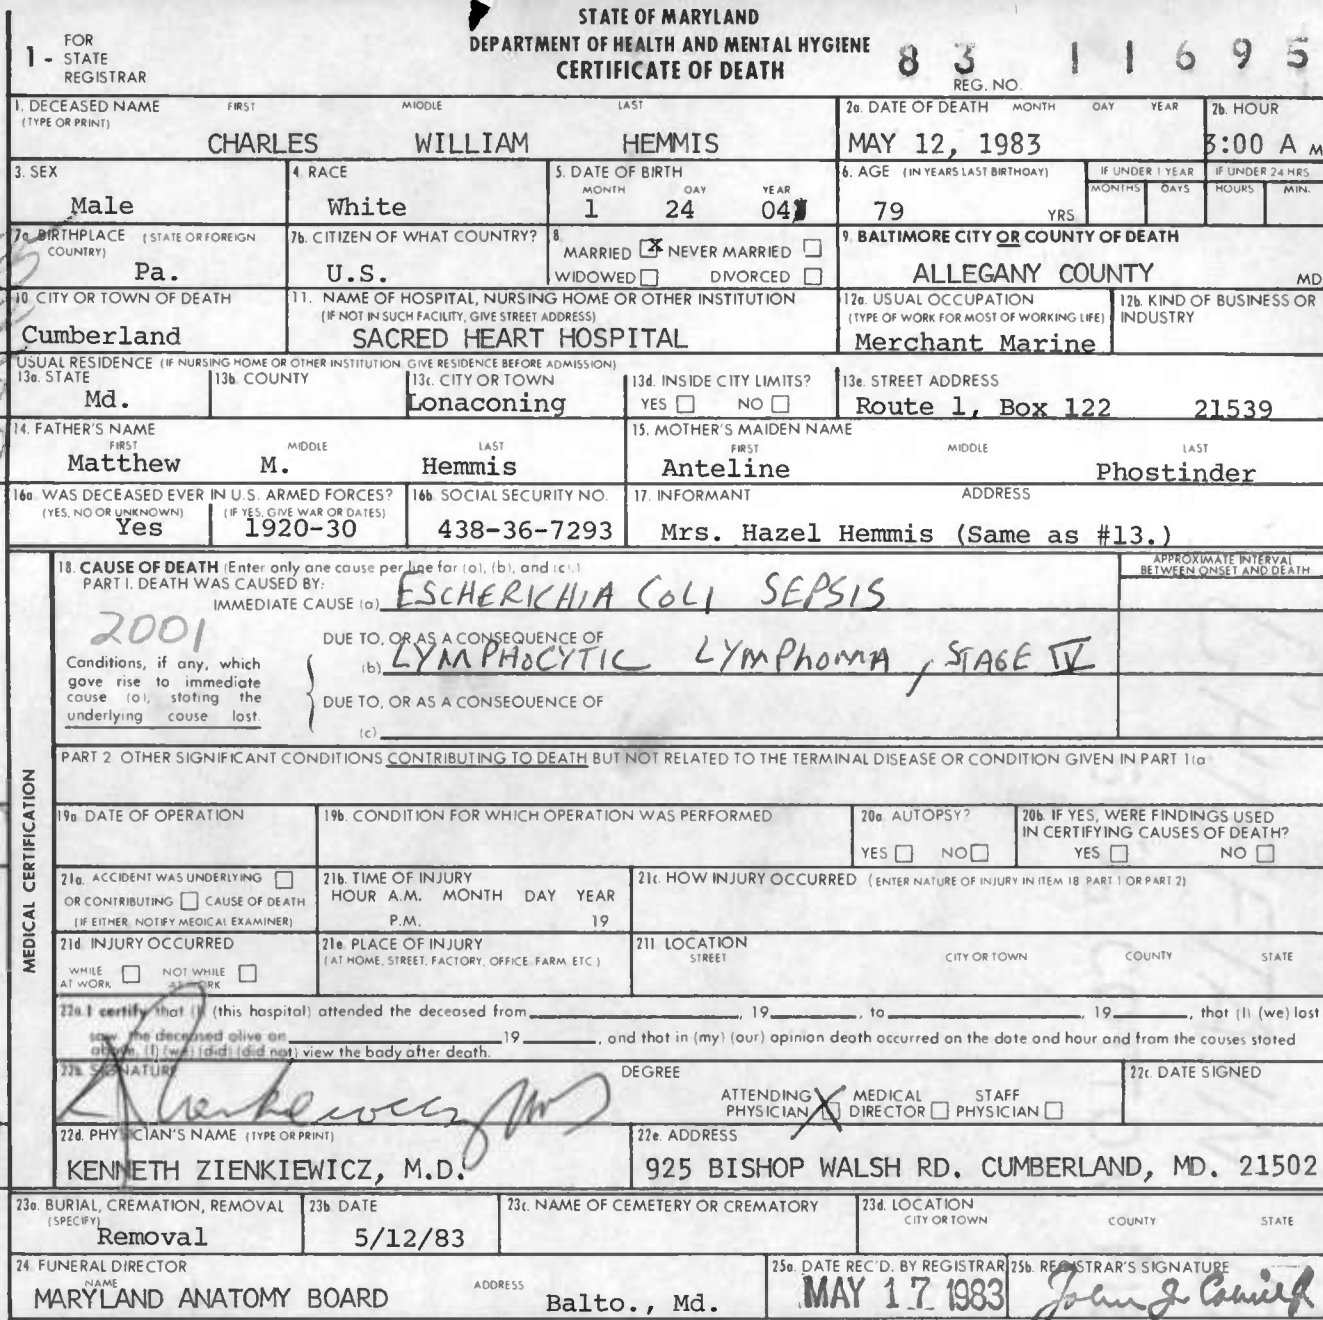 STATE OF MARYLAND
DEPARTMENT OF HEALTH AND MENTAL HYGIENE
CERTIFICATE OF DEATH
1 - FOR STATE REGISTRAR
83 11695
REG. NO.
1. DECEASED NAME FIRST MIDDLE LAST
(TYPE OR PRINT)
CHARLES WILLIAM HEMMIS
2a. DATE OF DEATH MONTH DAY YEAR
MAY 12, 1983
2b. HOUR
3:00 A M
3. SEX
Male
4. RACE
White
5. DATE OF BIRTH
MONTH DAY YEAR
1 24 04
6. AGE (IN YEARS LAST BIRTHDAY)
79 YRS
IF UNDER 1 YEAR
MONTHS DAYS
IF UNDER 24 HRS
HOURS MIN.
7a. BIRTHPLACE (STATE OR FOREIGN
COUNTRY)
Pa.
7b. CITIZEN OF WHAT COUNTRY?
U.S.
8.
MARRIED X NEVER MARRIED
WIDOWED DIVORCED
9. BALTIMORE CITY OR COUNTY OF DEATH
ALLEGANY COUNTY MD
10. CITY OR TOWN OF DEATH
Cumberland
11. NAME OF HOSPITAL, NURSING HOME OR OTHER INSTITUTION
(IF NOT IN SUCH FACILITY, GIVE STREET ADDRESS)
SACRED HEART HOSPITAL
12a. USUAL OCCUPATION
(TYPE OF WORK FOR MOST OF WORKING LIFE)
Merchant Marine
12b. KIND OF BUSINESS OR
INDUSTRY
USUAL RESIDENCE (IF NURSING HOME OR OTHER INSTITUTION GIVE RESIDENCE BEFORE ADMISSION)
13a. STATE
Md.
13b. COUNTY
13c. CITY OR TOWN
Lonaconing
13d. INSIDE CITY LIMITS?
YES NO
13e. STREET ADDRESS
Route 1, Box 122 21539
14. FATHER'S NAME
FIRST MIDDLE LAST
Matthew M. Hemmis
15. MOTHER'S MAIDEN NAME
FIRST MIDDLE LAST
Anteline Phostinder
16a. WAS DECEASED EVER IN U.S. ARMED FORCES?
(YES, NO OR UNKNOWN) (IF YES, GIVE WAR OR DATES)
Yes 1920-30
16b. SOCIAL SECURITY NO.
438-36-7293
17. INFORMANT ADDRESS
Mrs. Hazel Hemmis (Same as #13.)
MEDICAL CERTIFICATION
18. CAUSE OF DEATH (Enter only one cause per line for (a), (b), and (c).)
APPROXIMATE INTERVAL
BETWEEN ONSET AND DEATH
PART I. DEATH WAS CAUSED BY:
IMMEDIATE CAUSE (a) ESCHERICHIA COLI SEPSIS
2001
DUE TO, OR AS A CONSEQUENCE OF
(b) LYMPHOCYTIC LYMPHOMA, STAGE IV
Conditions, if any, which
gave rise to immediate
cause (a), stating the
underlying cause last.
DUE TO, OR AS A CONSEQUENCE OF
(c)
PART 2 OTHER SIGNIFICANT CONDITIONS CONTRIBUTING TO DEATH BUT NOT RELATED TO THE TERMINAL DISEASE OR CONDITION GIVEN IN PART 1(a
19a. DATE OF OPERATION
19b. CONDITION FOR WHICH OPERATION WAS PERFORMED
20a. AUTOPSY?
YES NO
20b. IF YES, WERE FINDINGS USED
IN CERTIFYING CAUSES OF DEATH?
YES NO
21a. ACCIDENT WAS UNDERLYING
OR CONTRIBUTING CAUSE OF DEATH
(IF EITHER, NOTIFY MEDICAL EXAMINER)
21b. TIME OF INJURY
HOUR A.M. MONTH DAY YEAR
P.M. 19
21c. HOW INJURY OCCURRED (ENTER NATURE OF INJURY IN ITEM 18 PART 1 OR PART 2)
21d. INJURY OCCURRED
WHILE AT WORK NOT WHILE AT WORK
21e. PLACE OF INJURY
(AT HOME, STREET, FACTORY, OFFICE, FARM, ETC.)
21f. LOCATION
STREET CITY OR TOWN COUNTY STATE
22a. I certify that (I) (this hospital) attended the deceased from 19 , to 19 , that (I) (we) lost
saw the deceased alive on 19 , and that in (my) (our) opinion death occurred on the date and hour and from the causes stated
above, (I) (we) (did) (did not) view the body after death.
22b. SIGNATURE
DEGREE
ATTENDING PHYSICIAN X MEDICAL DIRECTOR STAFF PHYSICIAN
22c. DATE SIGNED
22d. PHYSICIAN'S NAME (TYPE OR PRINT)
KENNETH ZIENKIEWICZ, M.D.
22e. ADDRESS
925 BISHOP WALSH RD. CUMBERLAND, MD. 21502
23a. BURIAL, CREMATION, REMOVAL
(SPECIFY)
Removal
23b. DATE
5/12/83
23c. NAME OF CEMETERY OR CREMATORY
23d. LOCATION
CITY OR TOWN COUNTY STATE
24. FUNERAL DIRECTOR
NAME ADDRESS
MARYLAND ANATOMY BOARD Balto., Md.
25a. DATE REC'D. BY REGISTRAR
MAY 17 1983
25b. REGISTRAR'S SIGNATURE
John J.